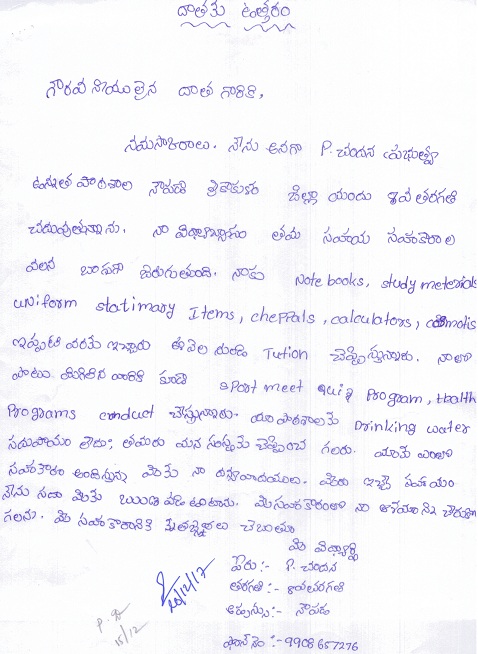 దాతకు ఉత్తరం
గౌరవనీయులైన దాత గారికి,
నమస్కారాలు. నేను అనగా P. చందన ప్రభుత్వ
ఉన్నత పాఠశాల నౌపడ శ్రీకాకుళం జిల్లా యందు 8వ తరగతి
చదువుతున్నాను. నా విద్యాభ్యాసం తమ సహాయ సహకారాల
వలన బాగుగా జరుగుతుంది. నాకు Note books, study meterials
uniform statimary Items, cheppals, calculators,
ఇప్పటి వరకు ఇచ్చారు ఈ నెల నుండి Tution చెప్పిస్తున్నారు. నాతో
పాటు మిగిలిన వారికి కుడా sport meet quiz Program, Health
Programs conduct చేస్తున్నారు. మా పాఠశాలకు Drinking water
సదుపాయం లేదు; తమరు మన సంస్థకు చెప్పించ గలరు. మాకు ఎంతో
సహకారం అందిస్తున్న మీకు నా ధన్యవాదములు. మీరు ఇచ్చే సహాయం
నేను సదా మీకు ఋణపడి ఉంటాను. మీ సహకారంతో నా ఆశయాన్ని చేరుకో
గలను. మీ సహకారానికి కృతజ్ఞతలు చెబుతూ
మీ విద్యార్థి
పేరు :- P. చందన
తరగతి :- 8వ తరగతి
:- నౌపడ
20/12/17
15/12
ఫోన్ నెం :- 9908657276